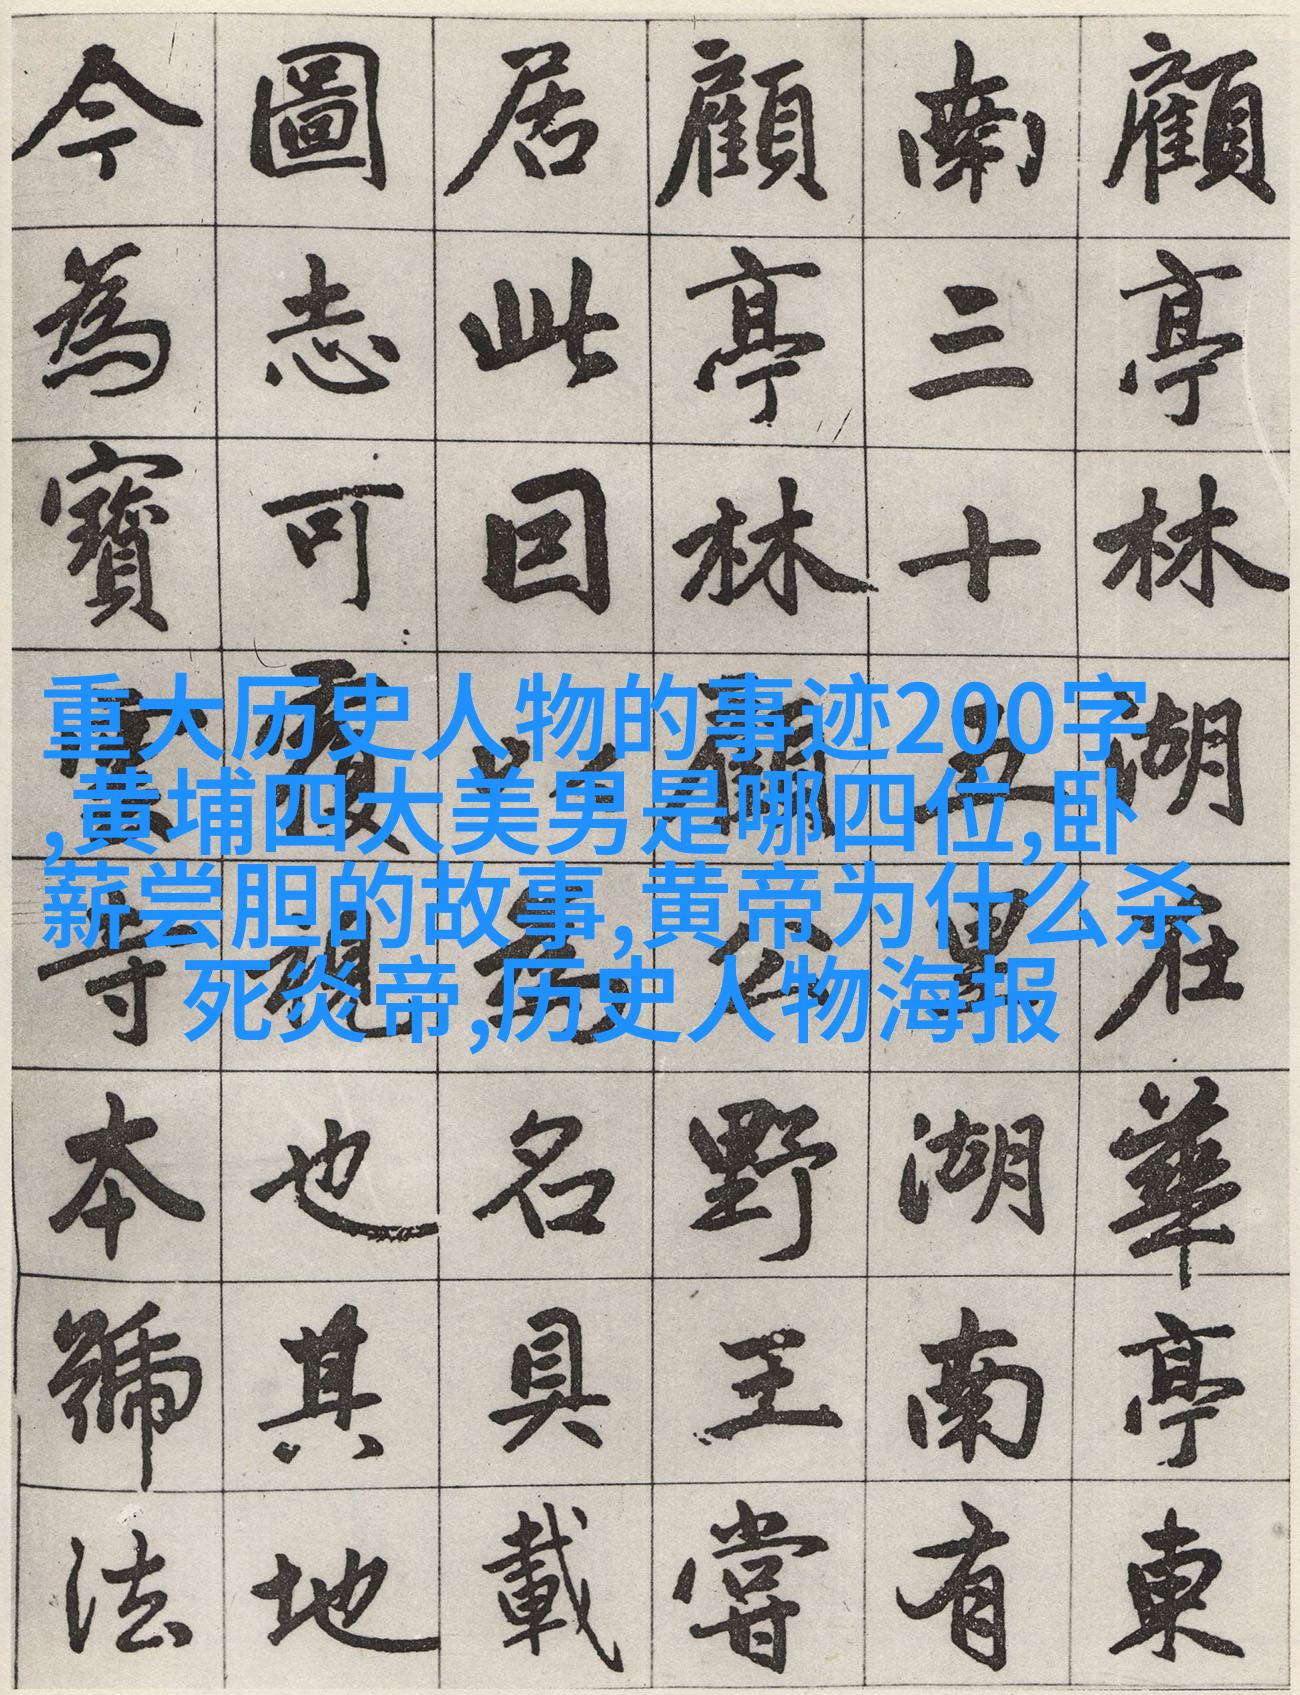 重大历史人物的事迹200字
,黄埔四大美男是哪四位,卧
薪尝胆的故事,黄帝为什么杀
死炎帝,历史人物海报
顧亭林湖在華亭東
南三十五里湖南有
顧亭林顧公野王嘗
居此因以為名具載
圖志可覆視也其地
今為寶雲寺本號法